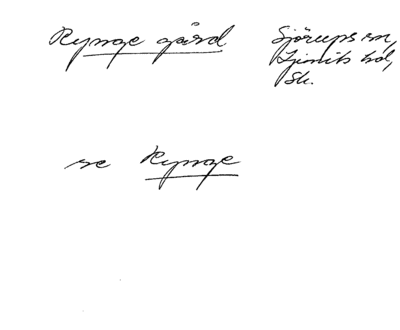 Rynge gård Sjörups sn,
Ljunits hd,
Sk.
se Rynge